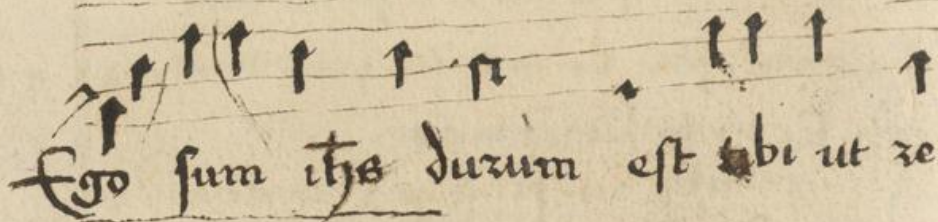 Ego sum ihs durum est tibi ut re